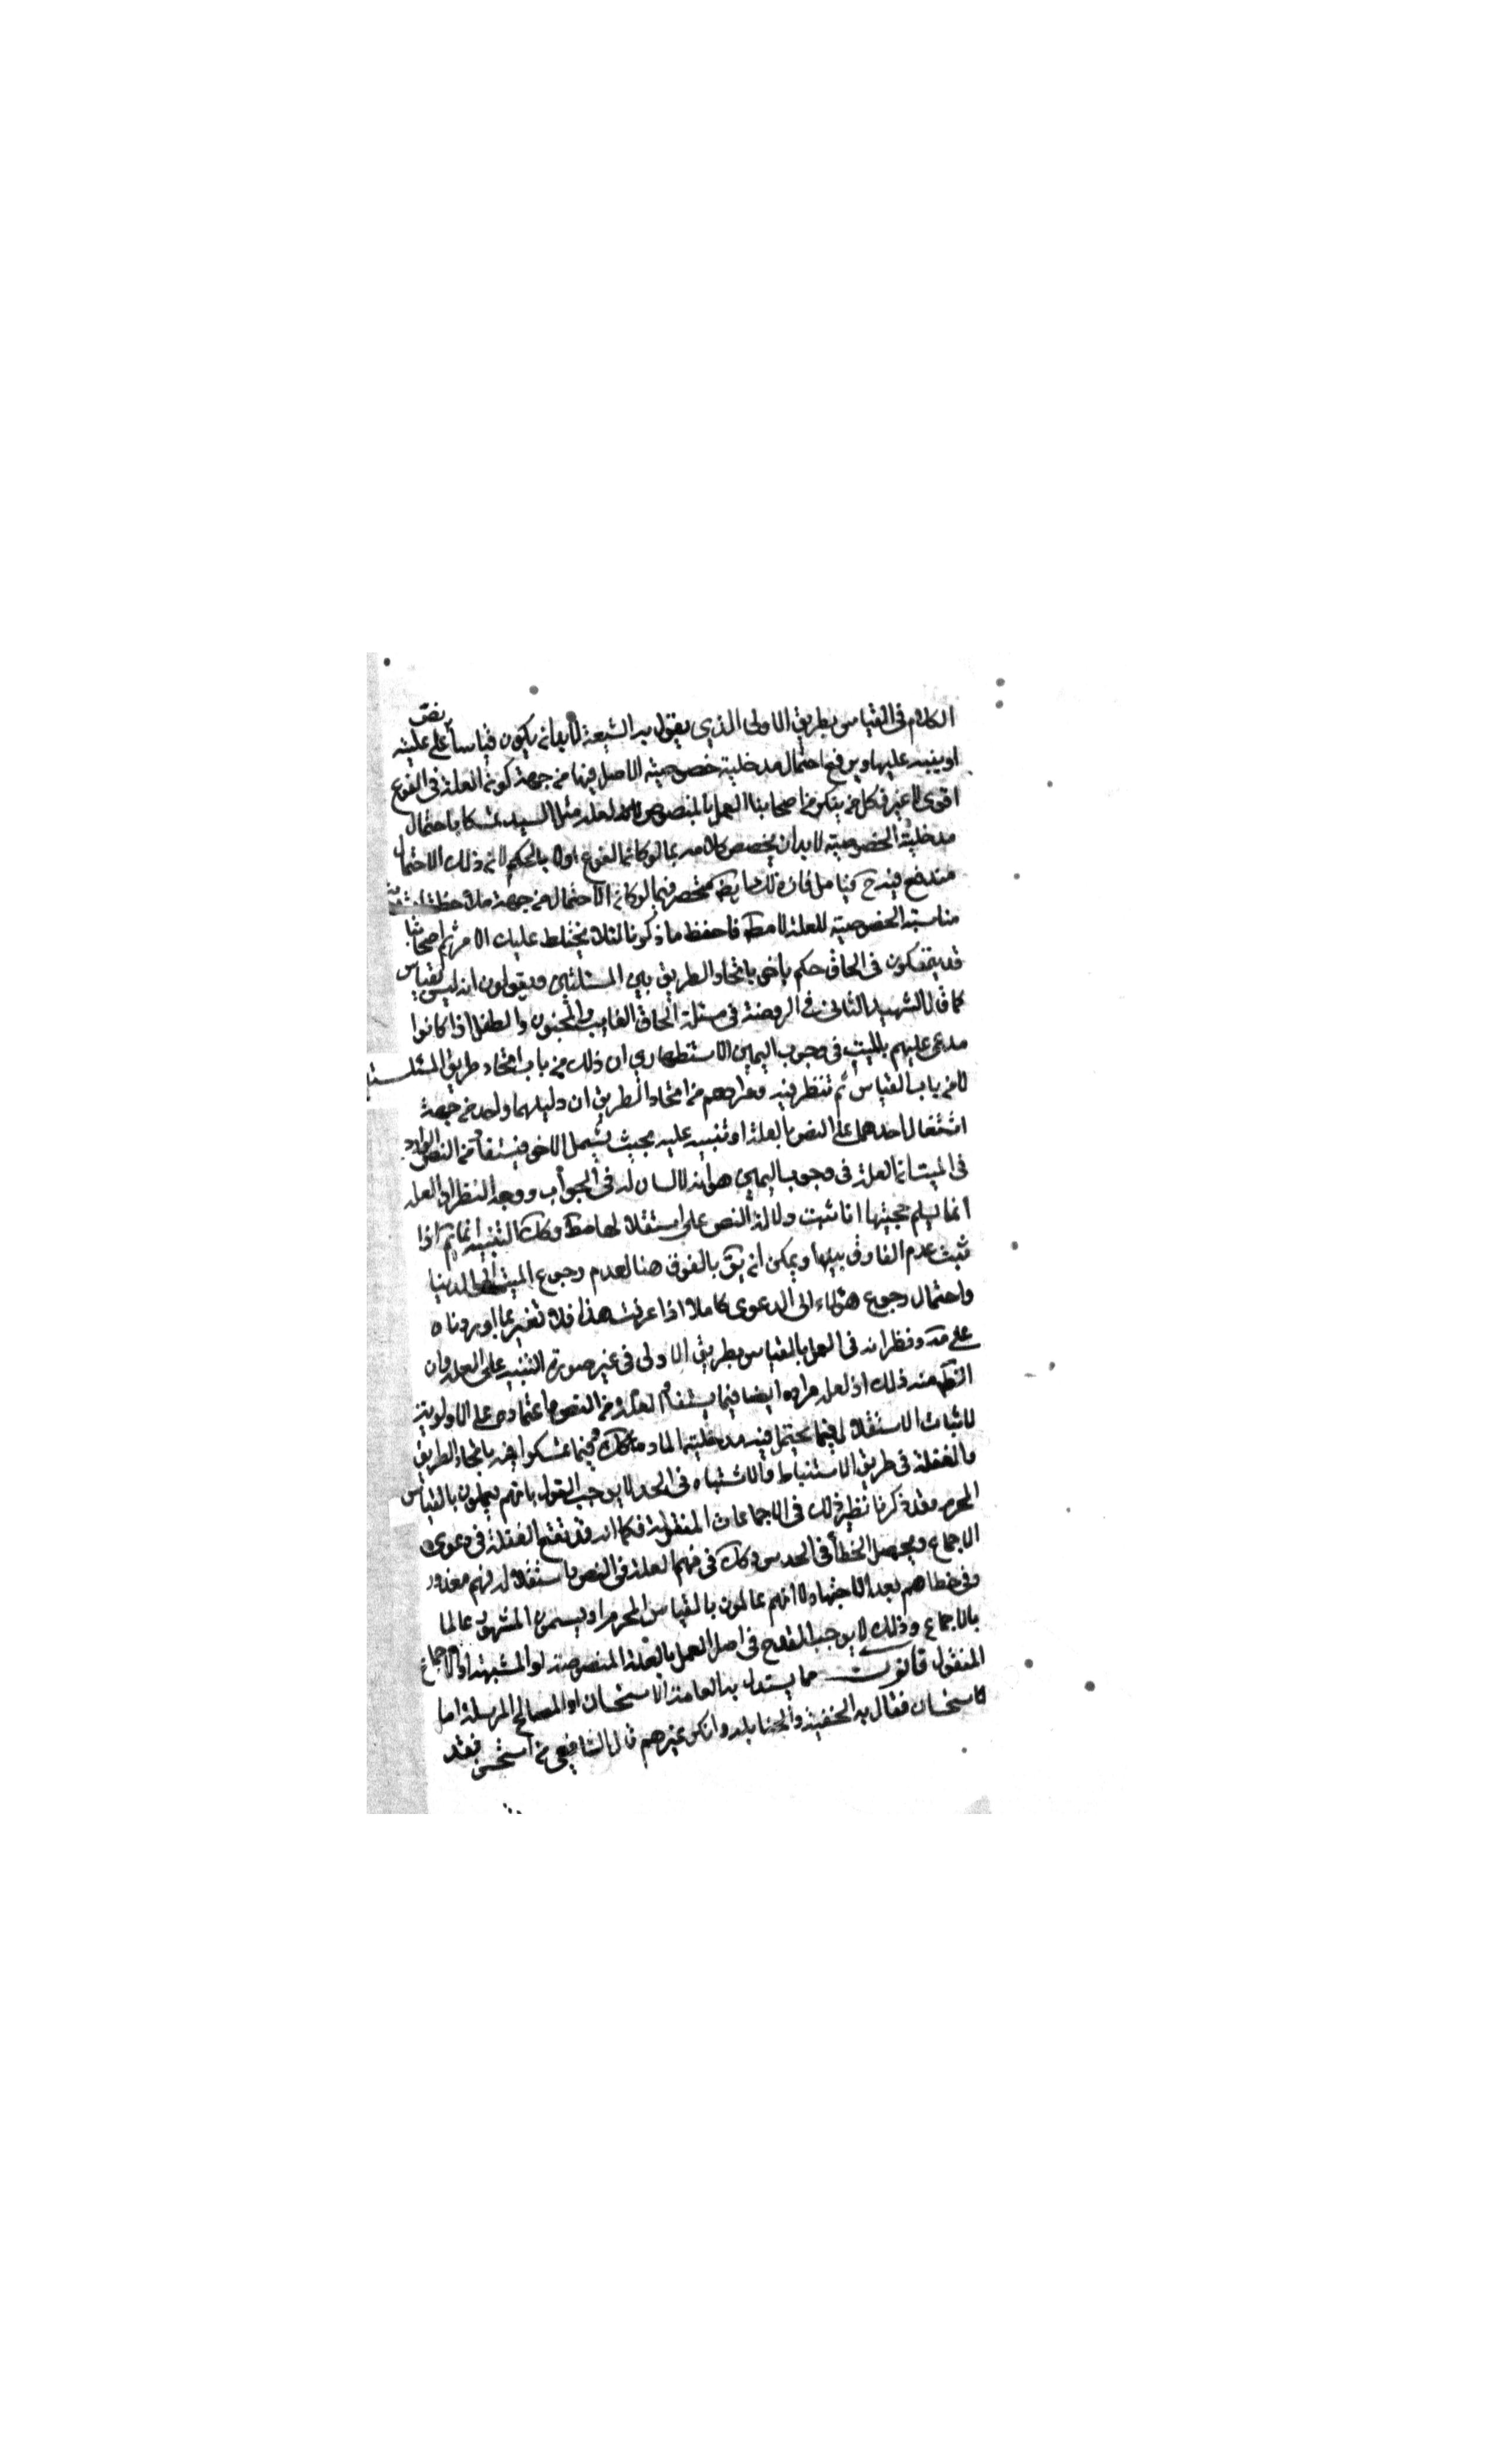 الكلام فى القياس بطريق الاولى الذي يقول به الشيعة لابد ان يكون قياسا على عليته ينص
او ينبه عليها ويرفع احتمال مدخلية خصوصية الاصل فيها من جهة كون العلة فى الفرع
اقوى لا غير فكل من ينكر من اصحابنا العمل بالمنصوص العلة مثل السيد تمسكا باحتمال
مدخلية الخصوصية لابد ان يخصص كلامه بما لو كان الفرع اولى بالحكم لان ذلك الاحتمال
مندفع فيه ح فيما لو كان الاحتمال من جهة ملاحظة
مناسبة الخصوصية للعلة لا مط فاحفظ ما ذكرنا لئلا يختلط عليك الامر ثم اصحابنا
قد يتمسكون فى الحاق حكم باخر باتحاد الطريق بين المسئلتين ويقولون انه ليس بقياس
كما قال الشهيد الثانى فى الروضة فى مسئلة الحاق الغايب والمجنون والطفل اذا كانوا
مدعى عليهم بالميت فى وجوب اليمين الاستظهاري ان ذلك من باب اتحاد طريق المسئلتين
لا من باب القياس ثم تنظر فيه ومرادهم من اتحاد الطريق ان دليلهما واحد من جهة
اشتمال احدهما على النص بالعلة او تنبيه عليه بحيث يشمل الاخر فيستفاد من النص الوارد
فى الميت ان العلة فى وجوب اليمين هو انه لا لسان له فى الجواب ووجه النظر ان العلة
انما يسلم حجيتها اذا ثبت دلالة النص على استقلالها مط وكك التنبيه انما يتم اذا
ثبت عدم الفارق بينها ويمكن ان يق بالفرق هنا لعدم رجوع الميت الى الدنيا
واحتمال رجوع هؤلاء الى الدعوى كاملا اذا عرفت هذا فلا تغتر بما اوردناه
على مة ونظرائه فى العمل بالقياس بطريق الاولى فى غير صورة التنبيه على العلة وان
الظ منه ذلك اذ لعل مراده ايضا فيما يستفاد العلة من النص واعتماده على الاولوية
لاثبات الاستقلال فيما يحتمل فيه مدخلية المادة وكك فيما تمسكوا فيه باتحاد الطريق
والغفلة فى طريق الاستنباط والاشتباه فى الحد لا يوجب القول بانهم يعملون بالقياس
المحرم وقد ذكرنا نظير ذلك فى الاجماعات المنقولة فكما انه قد تقع الغفلة فى دعوى
الاجماع ويحصل الخطأ فى الحدس وكك فى فهم العلة فى النص واستقلاله فهم معذور
وفى خطاهم بعد الاجتهاد لا انهم عاملون بالقياس المحرم او يسمون المشهور عالما
بالاجماع وذلك لا يوجب القدح فى اصل العمل بالعلة المنصوصة او المنبهة او الاجماع
المنقول قانون مما يستدل به العامة الاستحسان او المصالح المرسلة اما
الاستحسان فقال به الحنفية والحنابلة وانكره غيرهم قال الشافعى من استحسن فقد